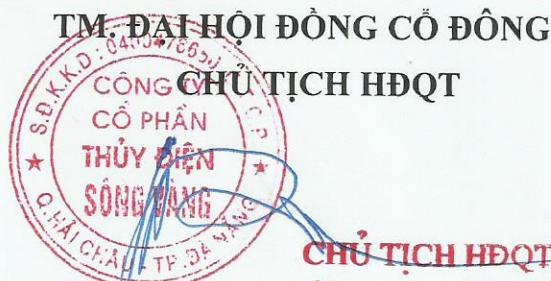 TM. ĐẠI HỘI ĐỒNG CỔ ĐÔNG
CHỦ TỊCH HĐQT
S.Đ.K.K.D:
C.P
CÔNG TY
CỔ PHẦN
THỦY ĐIỆN
SÔNG VÀNG
Q. HẢI CHÂU - TP. ĐÀ NẴNG
CHỦ TỊCH HĐQT